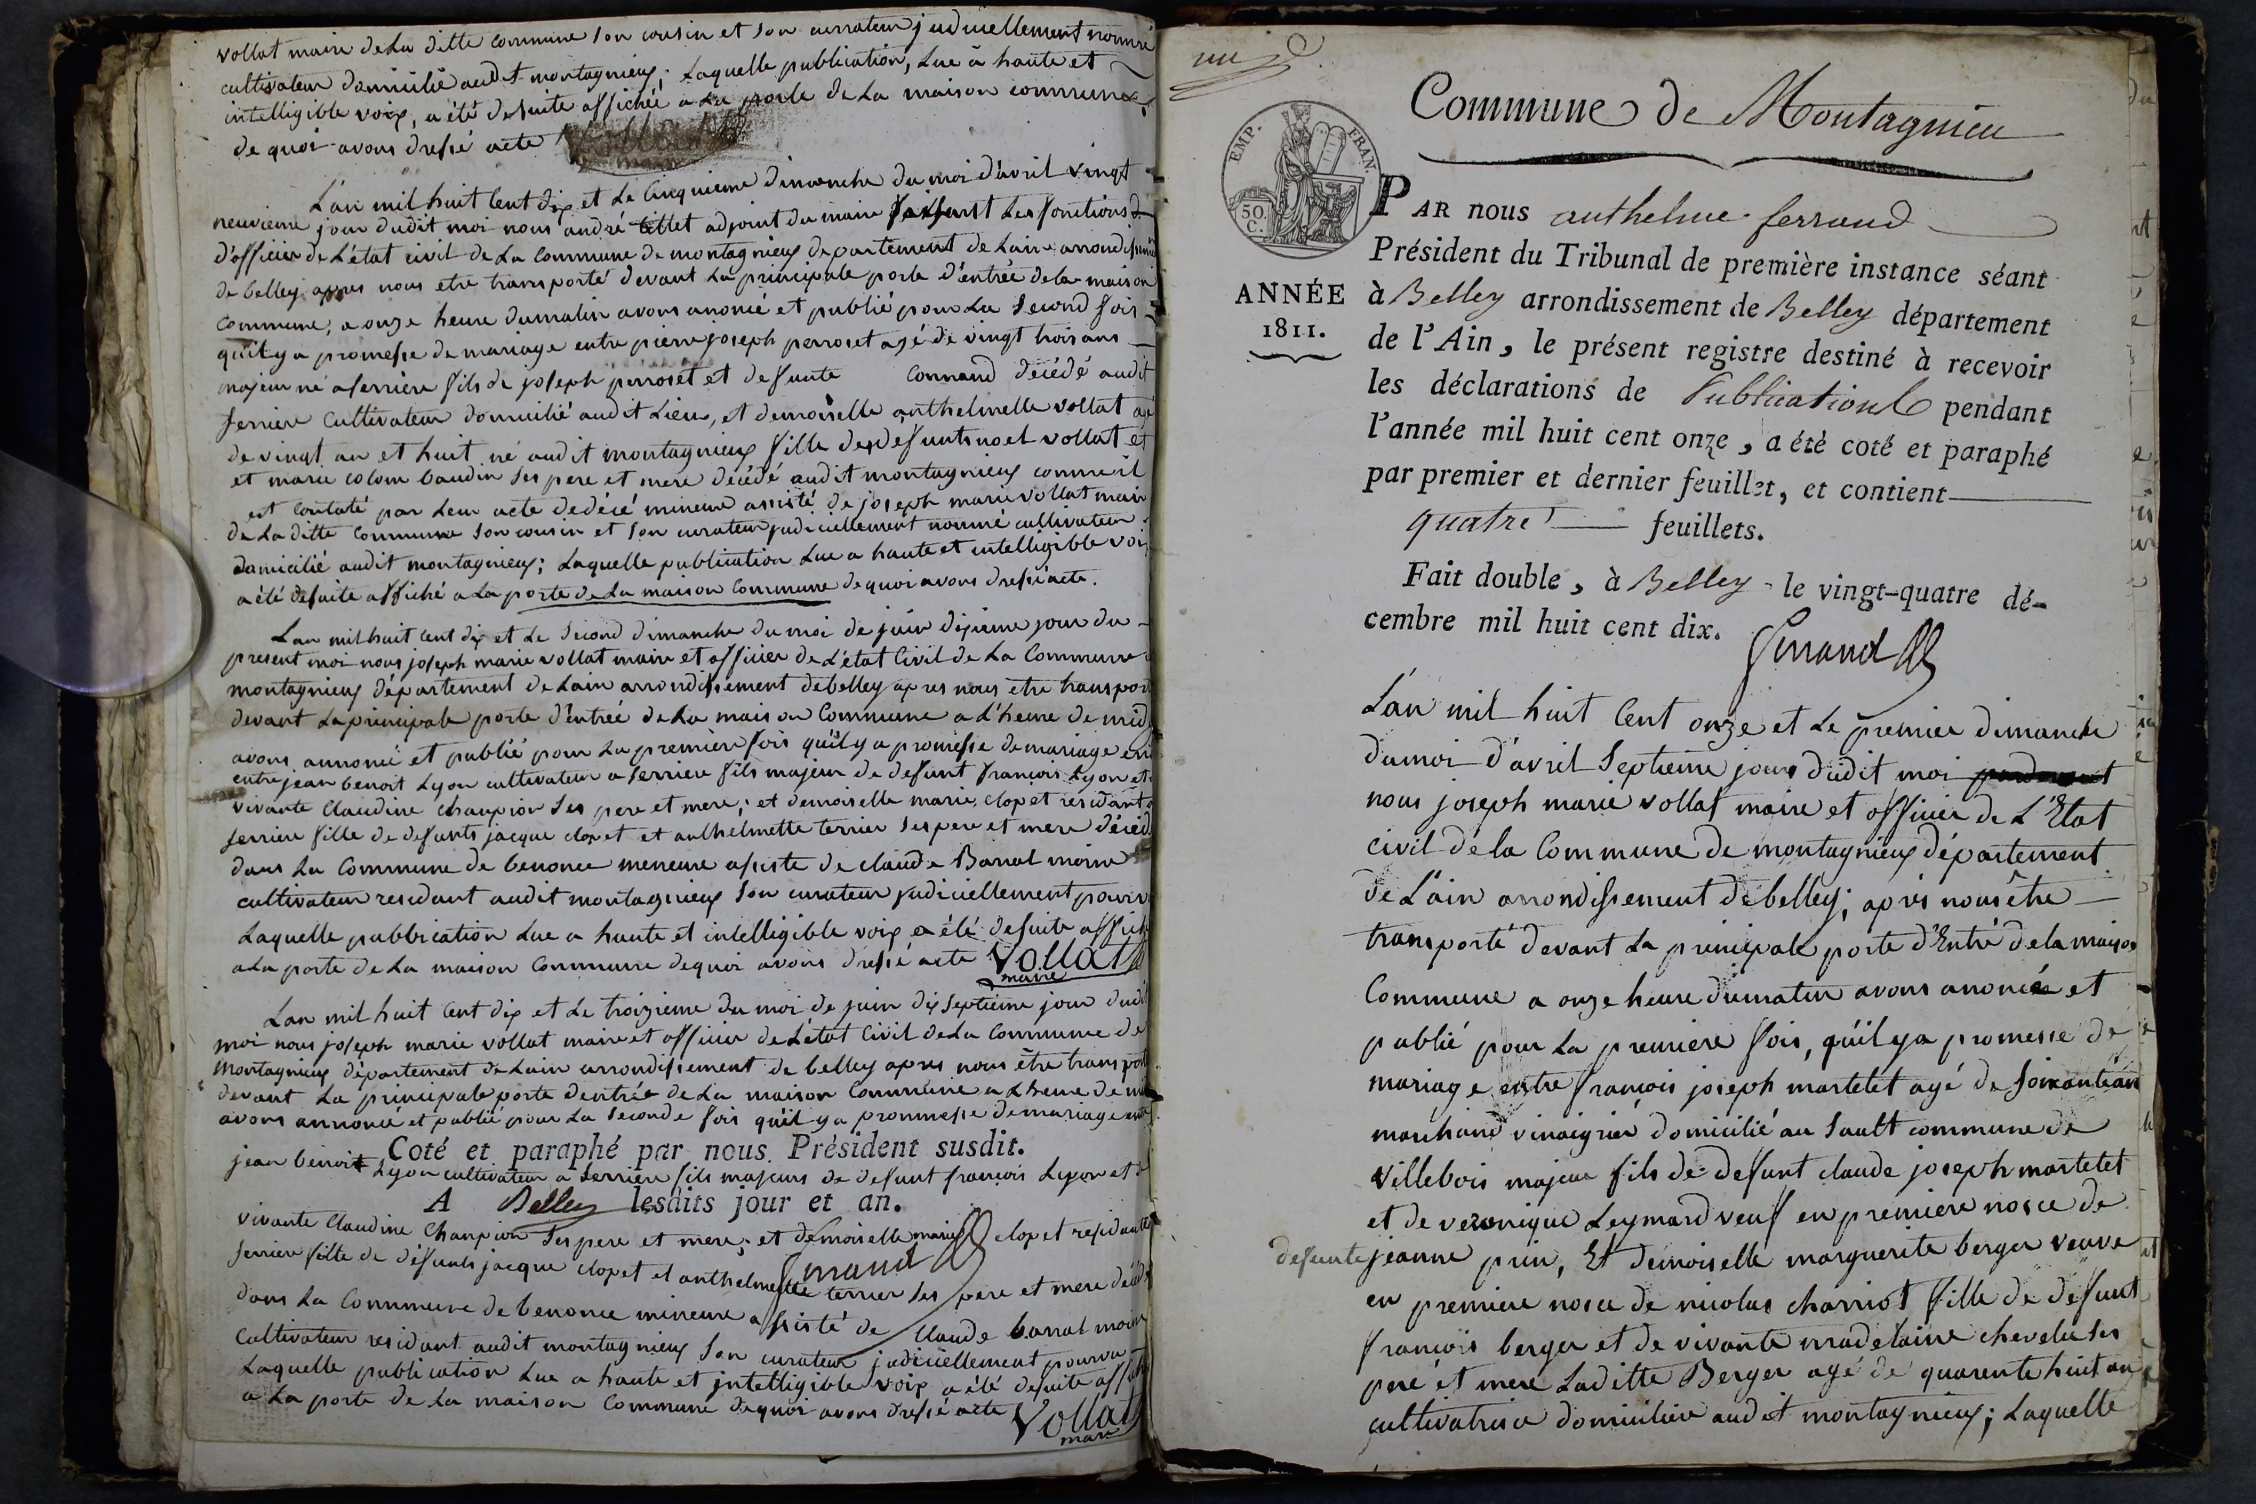 vollat maire de La ditte commune son cousin et son curateur judiciellement nommé
cultivateur domicilié audit montagnieux; Laquelle publication, Lue à haute et
intelligible voix, a été desuite affichée a La porte de La maison commune
de quoi avons dressé acte Vollat
maire
L'an mil huit Cent dix et Le Cinquieme dimanche du moi d'avril vingt
neuvieme jour dudit moi nous andré billet adjoint du maire faisant Les fonctions
d'officier de L'état civil de La Commune de montagnieux departement de Lain arrondissement
de belley apres nous etre transporté devant La principale porte d'entrée de la maison
Commune, a onze heure dumatin avons anoncé et publié pour La second fois
qu'il y a promesse de mariage entre pierre joseph perroset agé de vingt trois ans
majeur né a serriere fils de joseph perroset et defunte Connand décédé audit
serriere Cultivateur domicilié audit Lieu, et demoiselle anthelmelle vollat agé
de vingt an et huit né audit montagnieux fille des defunts noel vollat et
et marie colom baudin ses pere et mere décédé audit montagnieux comme il
est Contaté par Leur acte dedécé mineure assisté de joseph marie vollat maire
de La ditte Commune son cousin et son curateur judiciellement nommé cultivateur
domicilié audit montagnieux; Laquelle publication Lue a haute et intelligible voix
a été desuite affiché a La porte de La maison Commune de quoi avons dressé acte.
Lan mil huit Cent dix et Le second dimanche du moi de juin dixieme jour du
present moi nous joseph marie vollat maire et officier de L'état Civil de La Commune
montagnieux département de Lain arrondissement de belley apres nous etre transporté
devant La principale porte d'entrée de La maison Commune a L'heure de midi
avons annoncé et publié pour La premiere fois qu'il y a promesse de mariage
entre jean benoit Lyon cultivateur a serriere fils majeur de defunt françois Lyon et
vivante Claudine Champion ses pere et mere; et demoiselle marie clopet residante
serriere fille de defunts jacque clopet et anthelmette terrier ses pere et mere décédé
dans La Commune de benonce meneure assiste de claude Barral moine
cultivateur residant audit montagnieux son curateur judiciellement pourvu
Laquelle publication Lue a haute et intelligible voix a été desuite affiché
a La porte de La maison Commune dequoi avons dressé acte Vollat
maire
Lan mil huit Cent dix et Le troizieme du moi de juin dix septieme jour dudit
moi nous joseph marie vollat maire et officier de L'état Civil de La Commune de
montagnieux département de Lain arrondissement de belley apres nous être transporté
devant La principale porte dentrée de La maison Commune a Lheure de midi
avons annoncé et publié pour La seconde fois qu'il y a prommesse de mariage entre
Coté et paraphé par nous Président susdit.
jean benoit Lyon cultivateur a serriere fils majeurs de defunt françois Lyon et de
A Belley lesdits jour et an.
vivante Claudine Champion ses pere et mere; et demoiselle marie clopet residante
Ferrand
serriere fille de défunts jacque clopet et anthelmette terrier ses pere et mere décédé
dans La Commune de benonce mineure assisté de Claude barral moine
Cultivateur residant audit montagnieux son curateur judiciellement pourvu
Laquelle publication Lue a haute et intelligible voix a été desuite affiché
a La porte de La maison Commune dequoi avons dressé acte Vollat
maire
Commune de Montagnieu
EMP. FRAN.
50.
C.
PAR nous anthelme ferrand
Président du Tribunal de première instance séant
ANNÉE
1811.
à Belley arrondissement de Belley département
de l'Ain, le présent registre destiné à recevoir
les déclarations de Publications pendant
l'année mil huit cent onze, a été coté et paraphé
par premier et dernier feuillet, et contient
quatre feuillets.
Fait double, à Belley le vingt-quatre dé-
cembre mil huit cent dix.
Ferrand
L'an mil huit Cent onze et Le premier dimanche
dumoi d'avril septieme jour dudit moi
nous joseph marie vollat maire et officier de L'Etat
civil de la Commune de montagnieux département
de L'ain arrondissement de belley; après nous être
transporté devant La principale porte d'Entré de la maison
Commune a onze heure dumatin avons anoncée et
publié pour La premiere fois, qu'il ya promesse de
mariage entre françois joseph martelet agé de soixante an
marchand vinaigrier domicilié au sault commune de
villebois majeur fils de defunt claude joseph martelet
et de veronique Leymard veuf en premiere nosce de
defunte jeanne prin, Et demoiselle marguerite berger veuve
en premiere nosce de nicolas charriot fille de defunt
françois berger et de vivante madelaine chevelu ses
peré et mere Laditte Berger agé de quarente huit an
cultivatrice domiciliée audit montagnieux; Laquelle